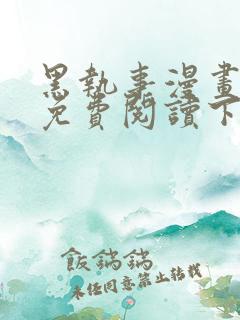 黑執事漫畫
免費閱讀下
飯鍋鍋
未經同意禁止轉載